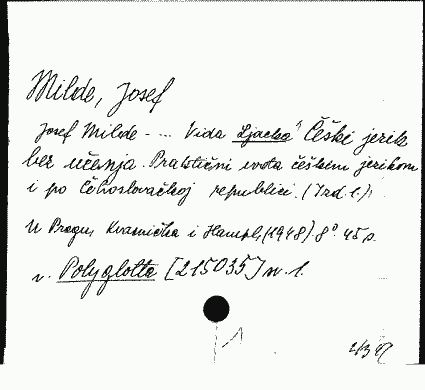 Milde, Josef
Josef Milde - ... Vida Ljacka, Češki jezik
bez učenja. Praktični vođa češkim jezikom
i po Čehoslovačkoj republici. (Izd. 1.)
U Pragu, Kvasnička i Hampl, (1948). 8° 45 p.
v. Polyglotta [215035] nr. 1.